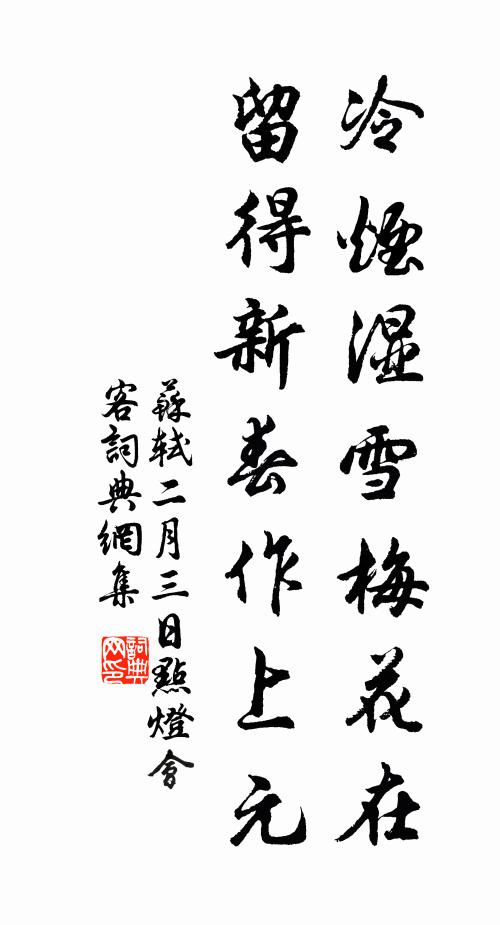 冷煙濕雪梅花在
留得新春作上元
蘇軾二月三日點燈會
客詞典網集
詞典网印